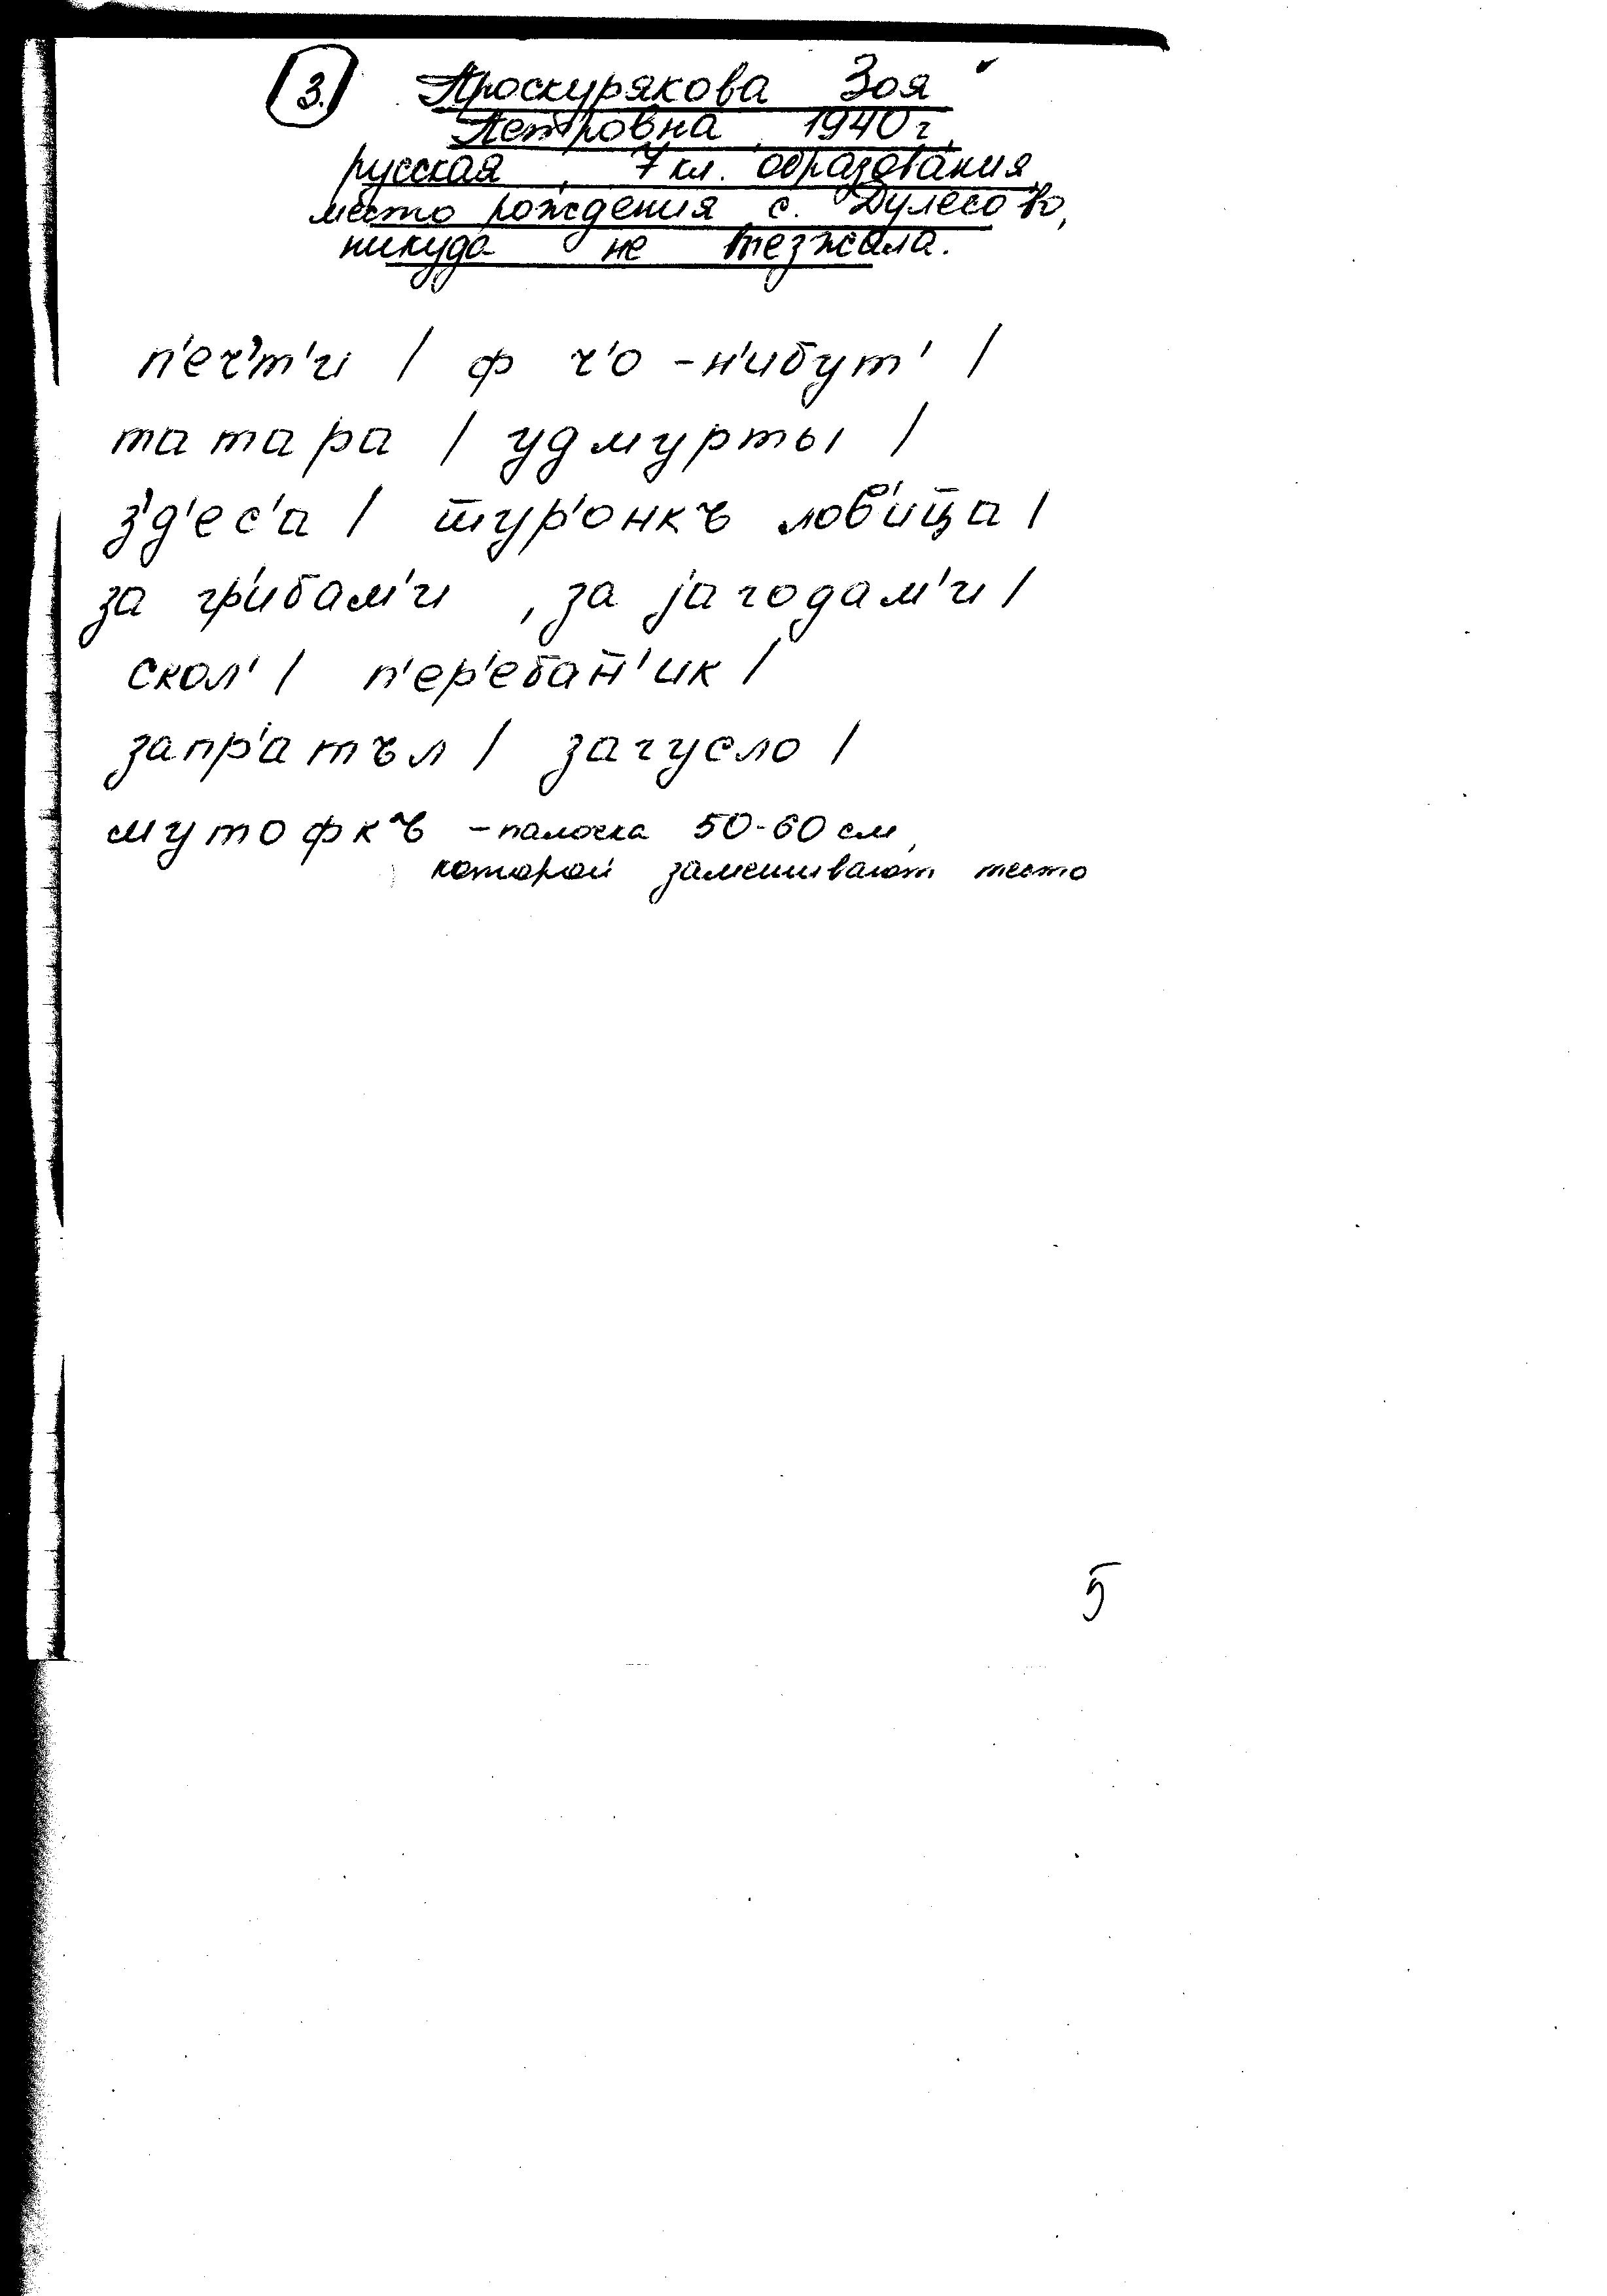 3. Проскурякова Зоя
Петровна, 1940 г.,
русская, 7 кл. образования,
место рождения с. Дулесово,
никуда не
п'еч'т'и / ф ч'о -н'ибут' /
татара / удмурты /
з'д'ес'а / лов'ица /
за гр'ибам'и, за jагодам'и /
скол' /
запр'атъл / загусло /
мутофкъ - палочка 50-60 см,
которой замешивают тесто
5